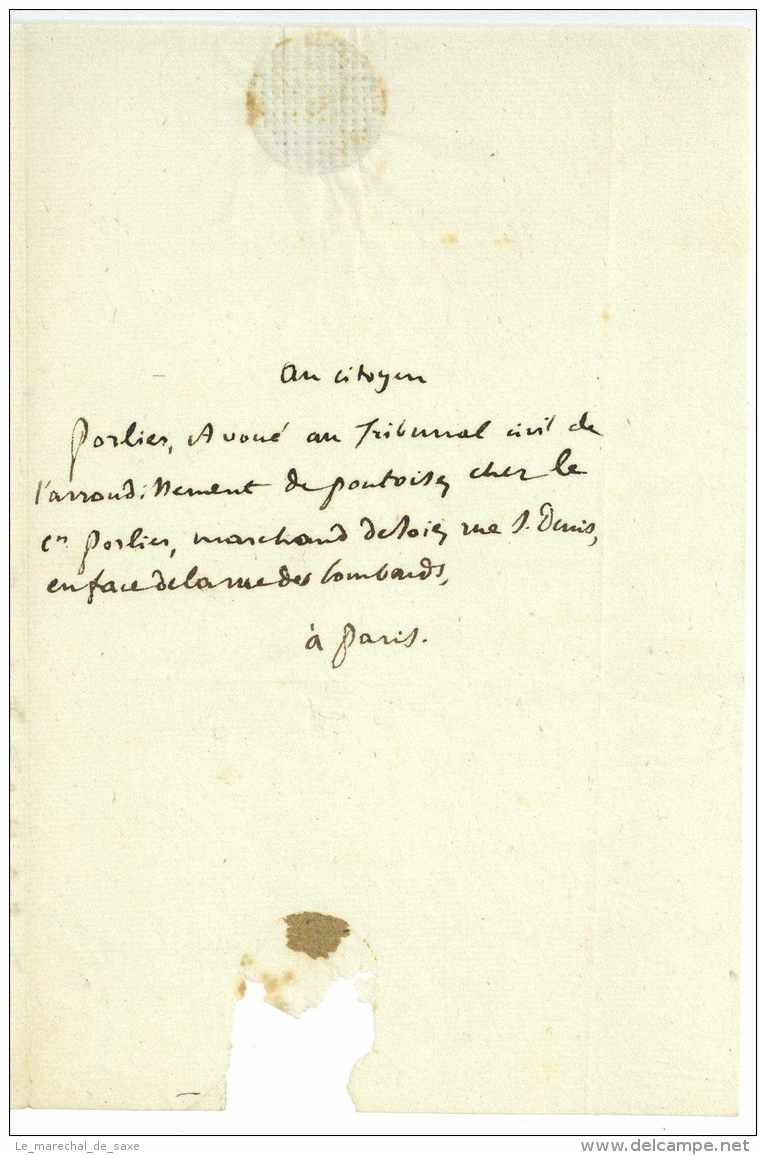 Au citoyen
Porlier, Avoué au Tribunal civil de
l'arrondissement de pontoise, chez le
Cen Porlier, marchand de soie, rue S. Denis,
en face de la rue des Lombards,
à Paris.
Le_marechal_de_saxe
www.delcampe.net